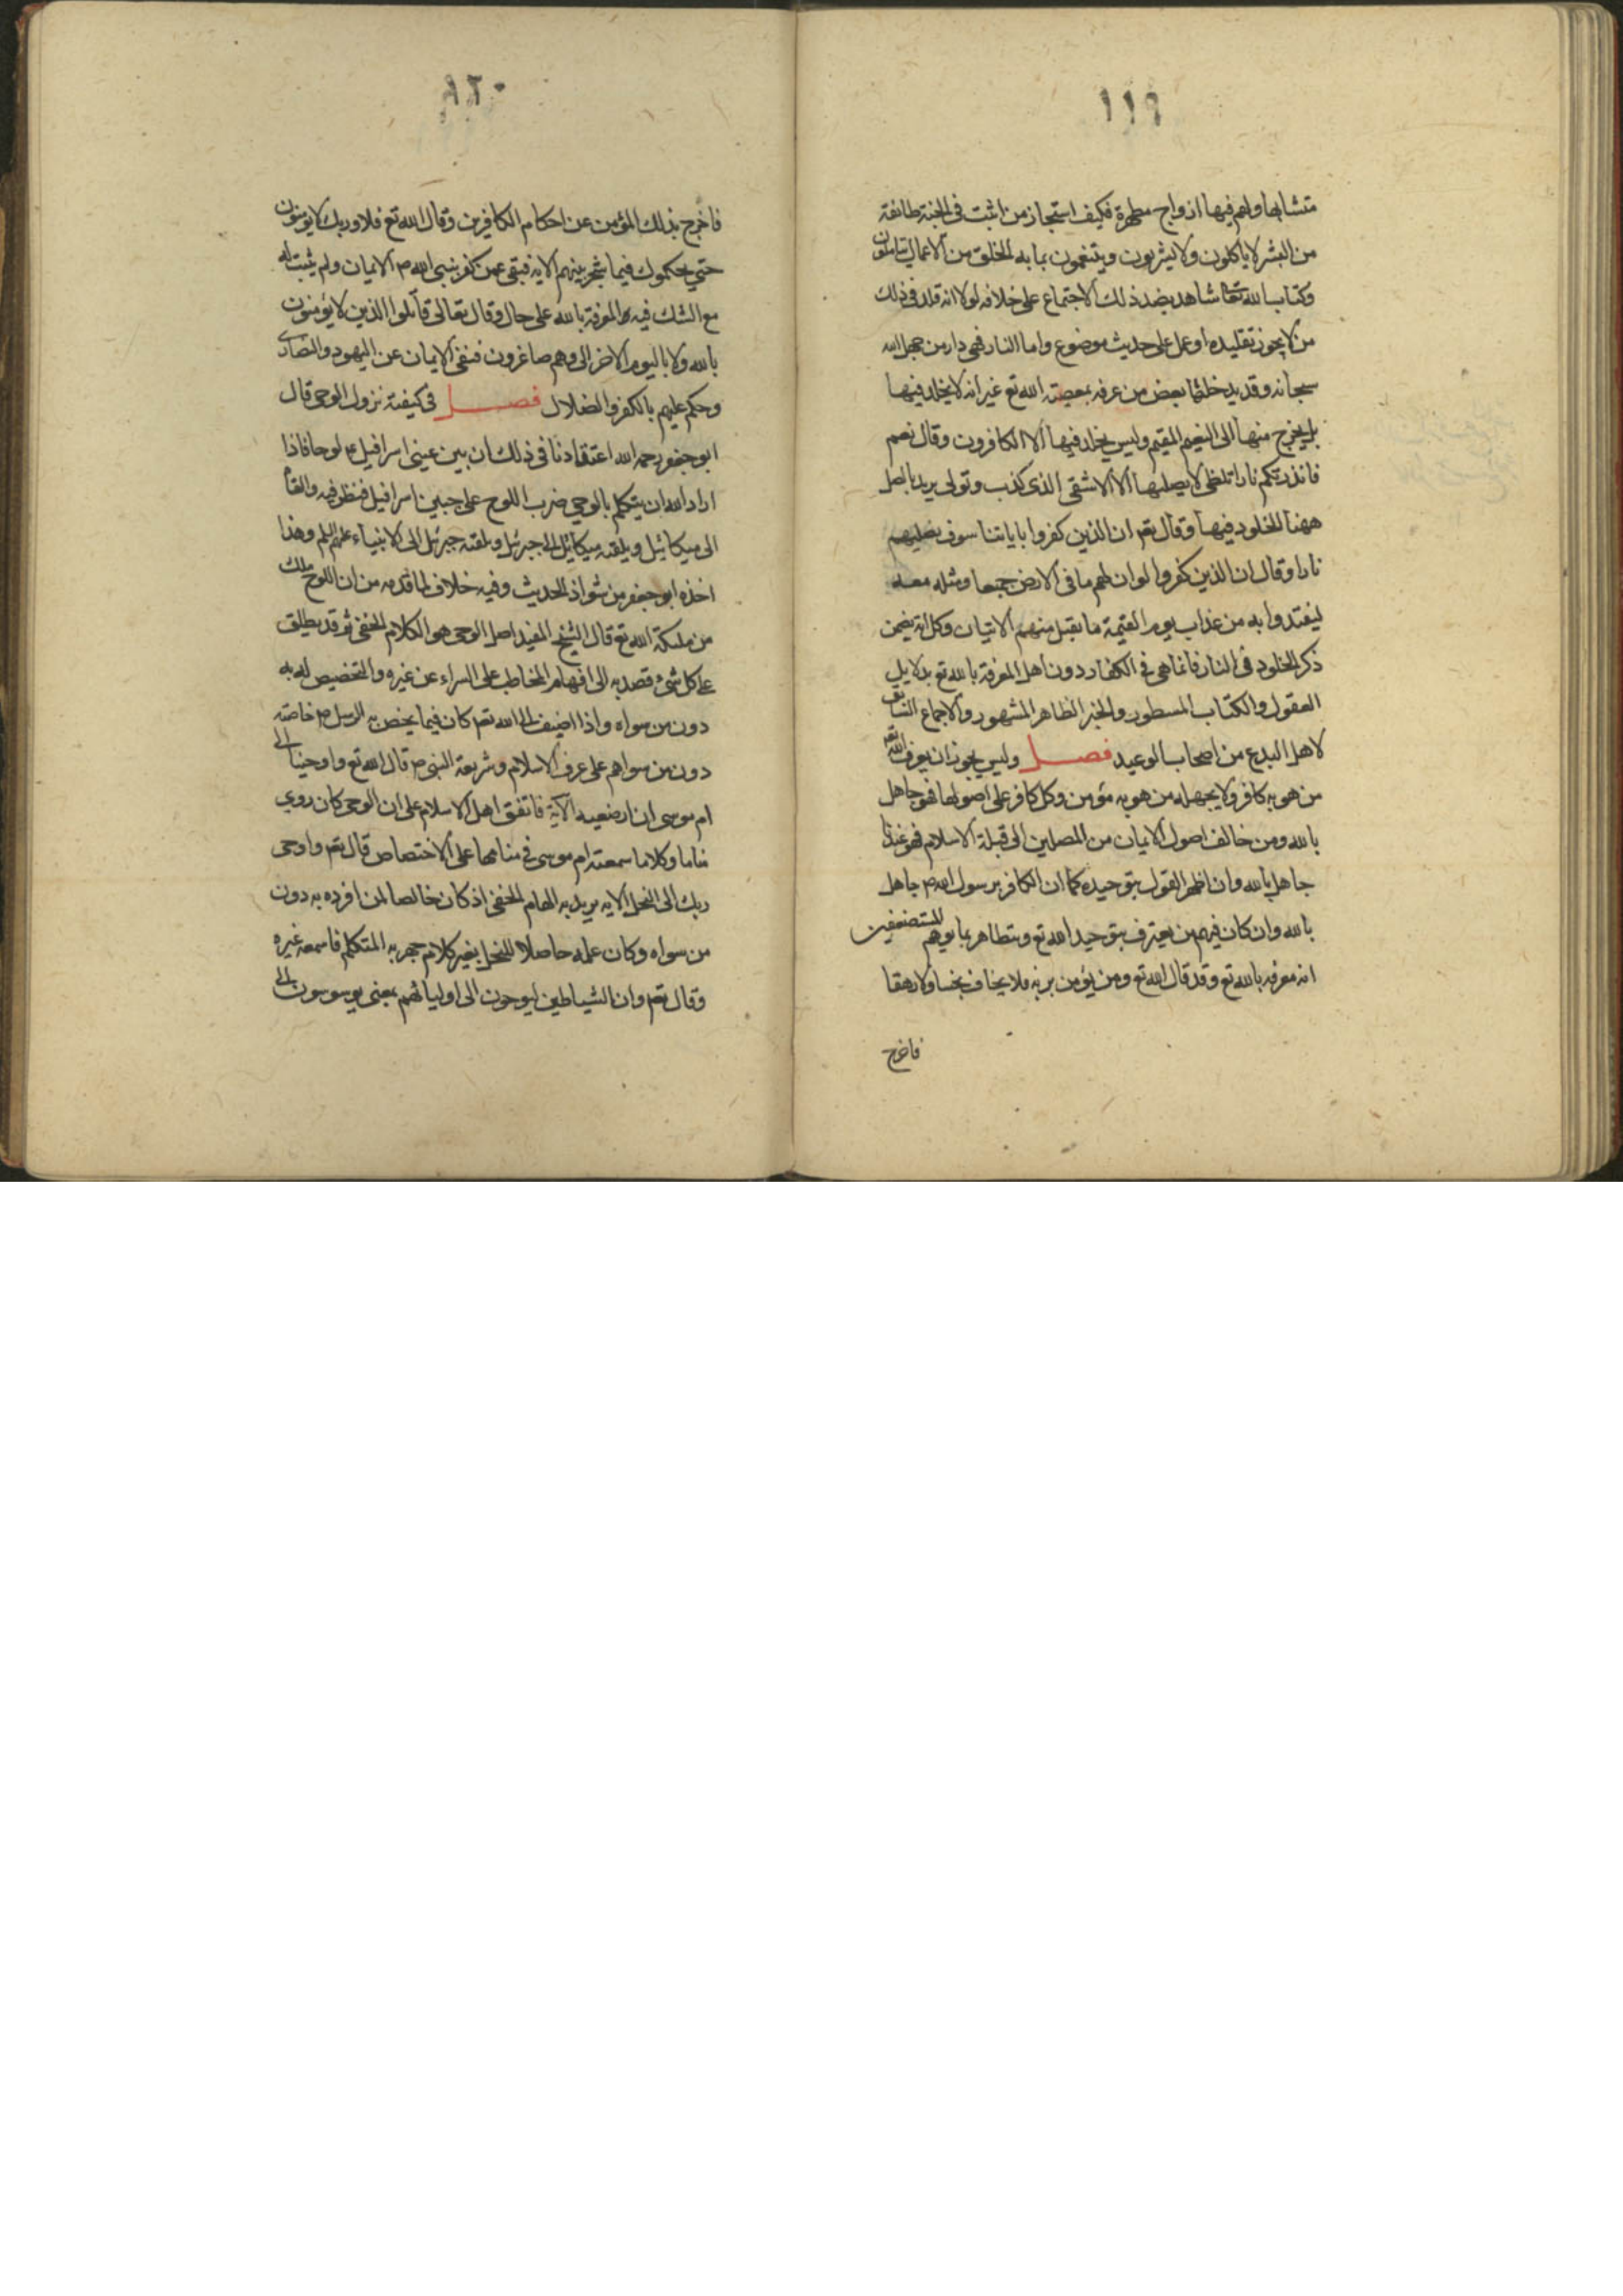 ١١٩
متشابها ولهم فيها ازواج مطهرة فكيف استجاز من اثبت فى الجنة طائفة
من البشر لا ياكلون ولا يشربون ويتنعمون بما به الخلق من الاعمال يتالمون
وكتاب الله تعا شاهد بضد ذلك الاجتماع على خلافه لولا انه قلد فى ذلك
من لا يجوز تقليده او عمل على حديث موضوع واما النار فهى دار من جهل الله
سبحانه وقد يدخلها بعض من عرفه بمعصية الله تع غير انه لا يخلد فيها
بل يخرج منها الى النعيم المقيم وليس يخلد فيها الا الكافرون وقال تعم
فانذرتكم نارا تلظى لا يصليها الا الاشقى الذى كذب وتولى يريد بالصل
ههنا الخلود فيها وقال تعم ان الذين كفروا باياتنا سوف نصليهم
نارا وقال ان الذين كفروا لو ان لهم ما فى الارض جميعا ومثله معه
ليفتدوا به من عذاب يوم القيمة ما تقبل منهم الاتيان وكل اية يضمن
ذكر الخلود فى النار فانما هى فى الكفار دون اهل المعرفة بالله تع بدلايل
العقول والكتاب المسطور والخبر الظاهر المشهور والاجماع السابق
لاهل البدع من اصحاب الوعيد فصل وليس يجوز ان يعرف الله تعم
من هو به كافر ولا يجهله من هو به مؤمن وكل كافر على اصولها فهو جاهل
بالله ومن خالف اصول الايمان من المصلين الى قبلة الاسلام فهو عندنا
جاهل بالله وان اظهر القول بتوحيده كما ان الكافر برسول الله ص جاهل
بالله وان كان فيهم من يعترف بتوحيد الله تع ويتظاهر بما يوهم المستضعفين
انه معرفه بالله تع وقد قال الله تع ومن يؤمن بربه فلا يخاف بخسا ولا رهقا
فاخرج
١٢٠
فاخرج بذلك المؤمن عن احكام الكافرين وقال الله تع فلا وربك لا يؤمنون
حتى يحكموك فيما شجر بينهم الايه فنفى عمن كفر بنبى الله ص الايمان ولم يثبت له
مع الشك فيه المعرفة بالله على حال وقال تعالى قاتلوا الذين لا يؤمنون
بالله ولا باليوم الاخر الى وهم صاغرون فنفى الايمان عن اليهود والنصارى
وحكم عليهم بالكفر والضلال فصل فى كيفية نزول الوحى قال
ابو جعفر رحمه الله اعتقادنا فى ذلك ان بين عينى اسرافيل ع لوحا فاذا
اراد الله ان يتكلم بالوحى ضرب اللوح على جبين اسرافيل فنظر فيه والقاه
الى ميكائيل ويلقنه ميكائيل الى جبرئيل ويلقنه جبرئيل الى الانبياء عليهم السلم وهذا
اخذه ابو جعفر من شواذ الحديث وفيه خلاف لما قدمه من ان اللوح ملك
من ملئكة الله تع قال الشيخ المفيد اصل الوحى هو الكلام الخفى ثم قد يطلق
على كل شئ قصد به الى افهام المخاطب على السر له عن غيره والتخصيص له به
دون من سواه واذا اضيف الى الله تعم كان فيما يخص به الرسل ص خاصة
دون من سواهم على عرف الاسلام وشريعة النبى ص قال الله تع واوحينا الى
ام موسى ان ارضعيه الآية فاتفق اهل الاسلام على ان الوحى كان رؤيا
مناما وكلاما سمعته ام موسى فى منامها على الاختصاص قال تعم واوحى
ربك الى النحل الايه يريد به الهام الخفى اذ كان خالصا لمن افرده به دون
من سواه وكان علمه حاصلا للنحل بغير كلام جهر به المتكلم فاسمعه غيره
وقال تعم وان الشياطين ليوحون الى اوليائهم بمعنى يوسوسون الى